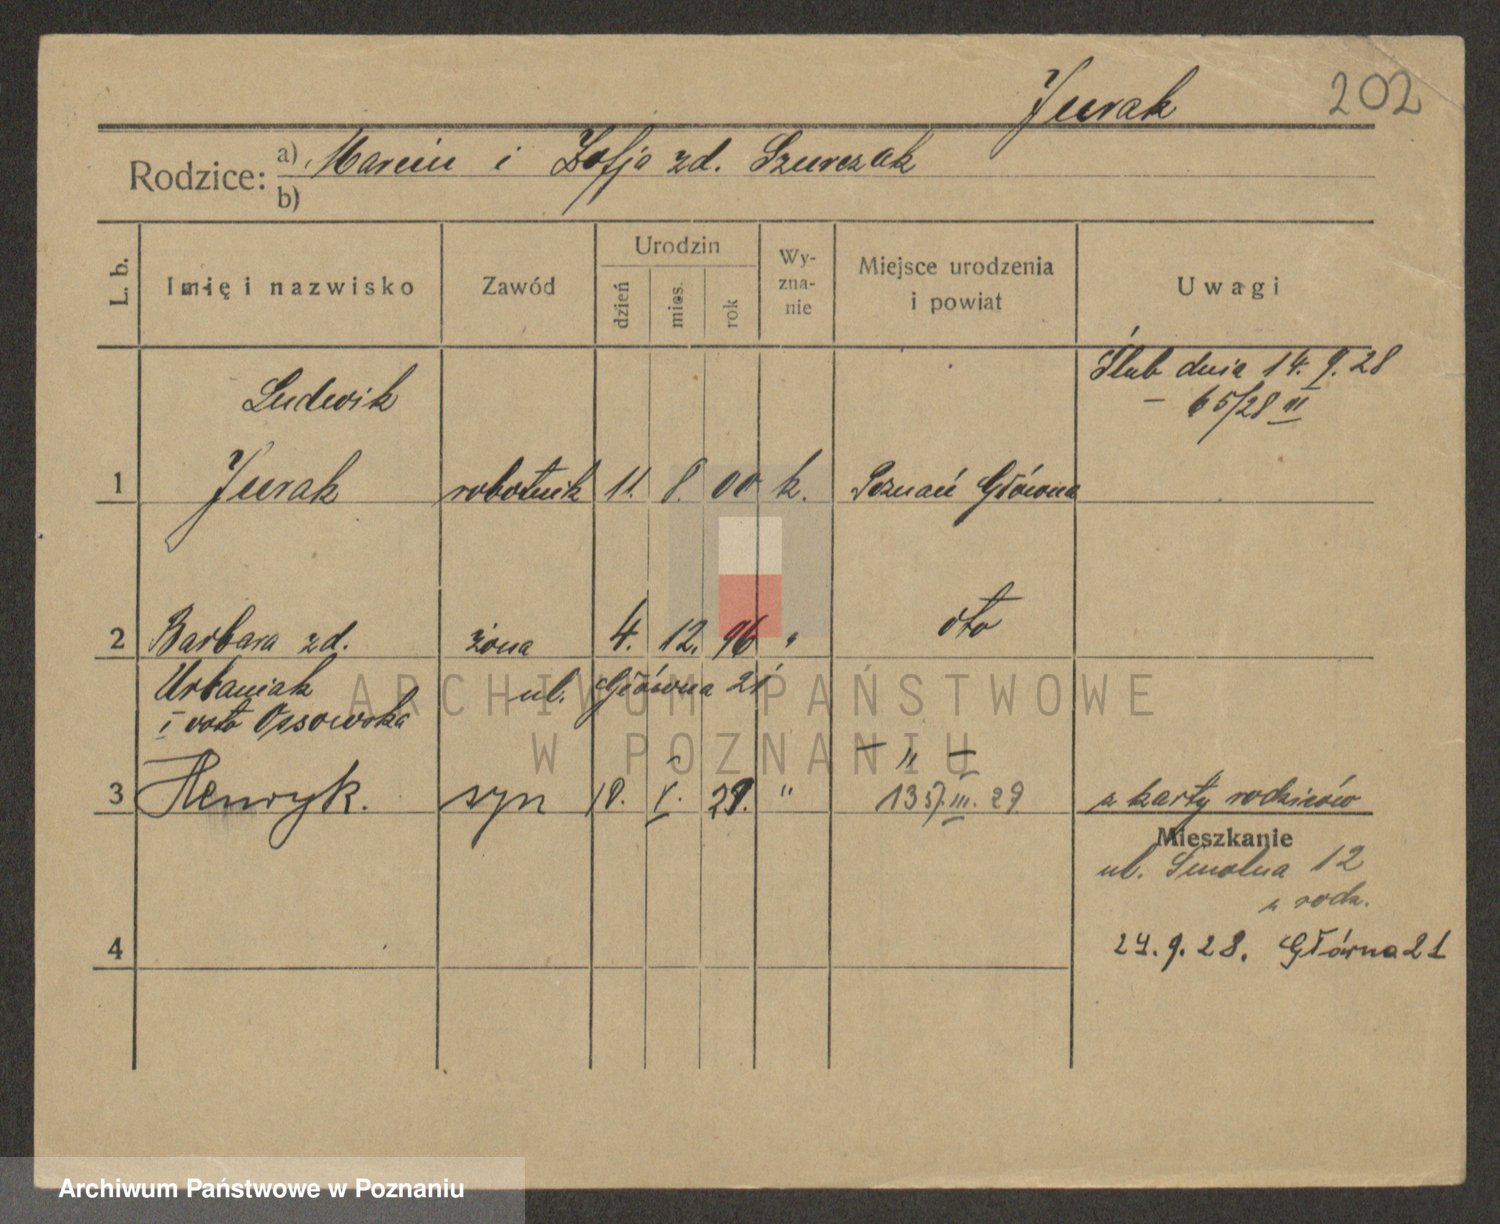 Jurak 202
Rodzice: a) Marcin i Zofja zd. Szurczak
b)
L. b. Imię i nazwisko Zawód Urodzin dzień mies. rok Wy-zna-nie Miejsce urodzenia i powiat Uwagi
Ślub dnia 14. 9. 28
– 65/28 III
Ludwik
1 Jurak robotnik 11. 8. 00 k. Poznań Główna
2 Barbara zd. żona 4. 12. 96 " dto
Urbaniak ul. Główna 21
I voto Ossowska
ARCHIWUM PAŃSTWOWE
W POZNANIU
– " –
3 Henryk. syn 18. V. 29. " 135/. III. 29 z karty rodziców
Mieszkanie
ul. Smolna 12
z rodz.
4 24. 9. 28. Główna 21
Archiwum Państwowe w Poznaniu